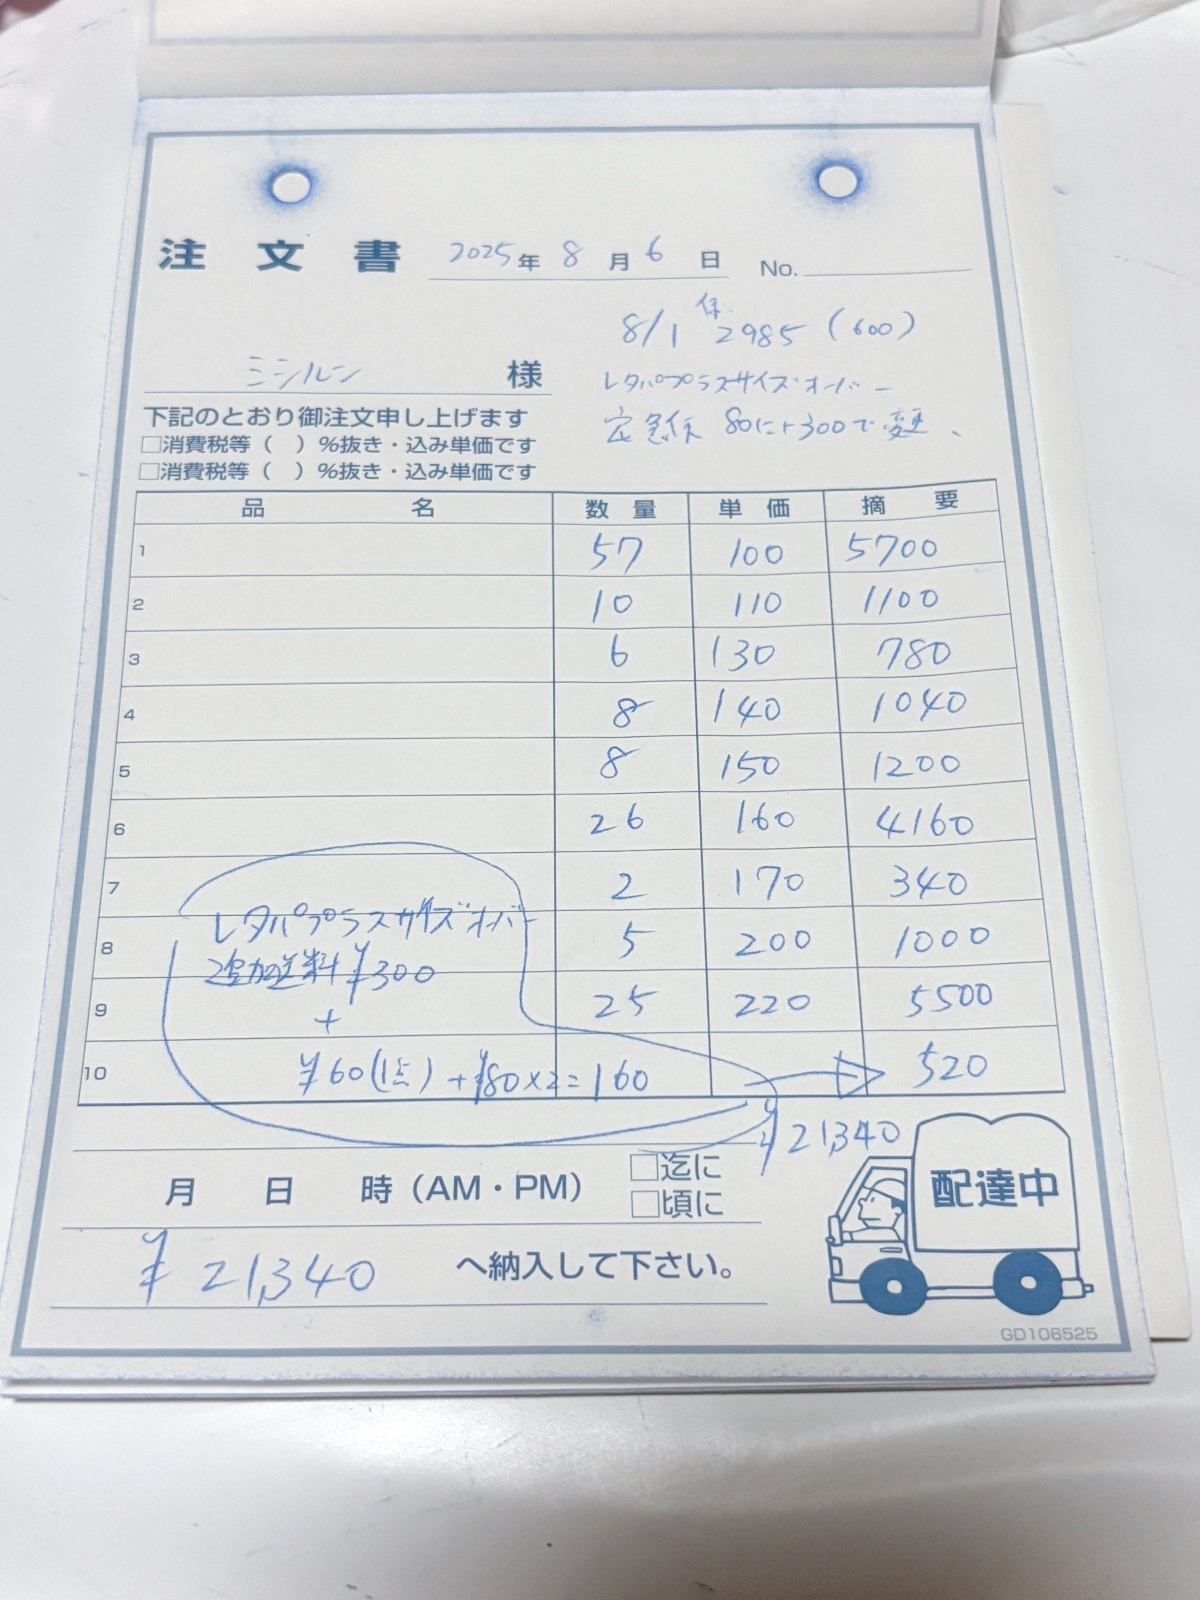 注文書 2025年 8月 6日 No.
8/1 保 2985 (600)
ミシルン 様
レタパプラスサイズオーバー
下記のとおり御注文申し上げます
80に+300で変更、
□消費税等( )%抜き・込み単価です
□消費税等( )%抜き・込み単価です
品名 数量 単価 摘要
1 57 100 5700
2 10 110 1100
3 6 130 780
4 8 140 1040
5 8 150 1200
6 26 160 4160
7 2 170 340
8 5 200 1000
レタパプラスサイズオーバー
追加送料¥300
9 25 220 5500
+
10 ¥60(1点)+¥80×2=160 520
¥21,340
月 日 時(AM・PM) □迄に
□頃に
配達中
¥21,340 へ納入して下さい。
GD106525